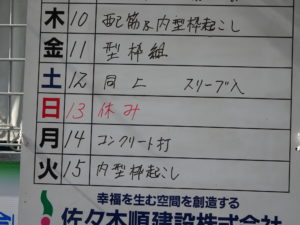 木 10 配筋&内型枠起こし
金 11 型枠組
土 12 同上 スリーブ入
日 13 休み
月 14 コンクリート打
火 15 内型枠起こし
幸福を生む空間を創造する
佐々木順建設株式会社